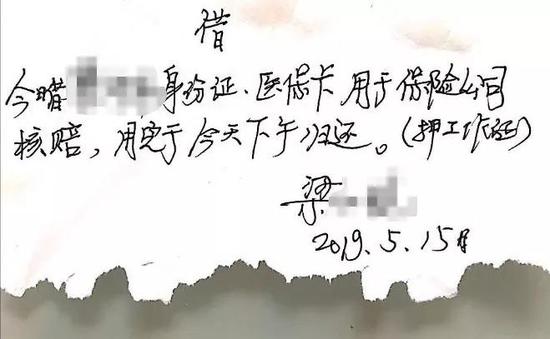 借
今借身份证、医保卡 用于保险公司
核赔，用完于今天下午归还。（押工作证）
梁
2019.5.15日